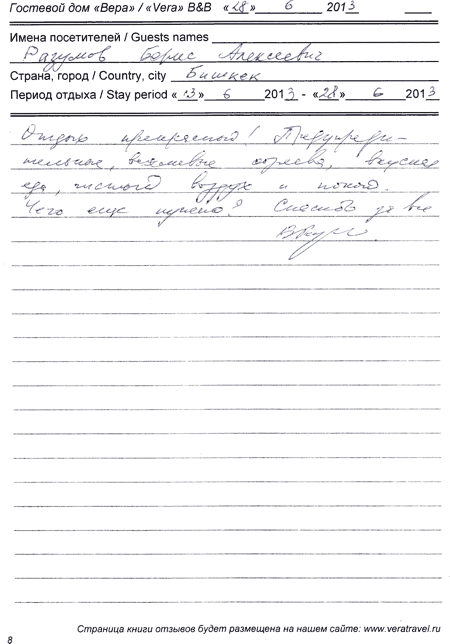 Гостевой дом «Вера» / «Vera» B&B «28» 6 2013
Имена посетителей / Guests names
Разумов Борис Алексеевич
Страна, город / Country, city Бишкек
Период отдыха / Stay period «13» 6 2013 - «28» 6 2013
Отдых прекрасный! Предупреди-
тельные, вежливые хозяева, вкусная
еда, чистый воздух и покой.
Чего еще нужно? Спасибо за все
Страница книги отзывов будет размещена на нашем сайте: www.veratravel.ru
8